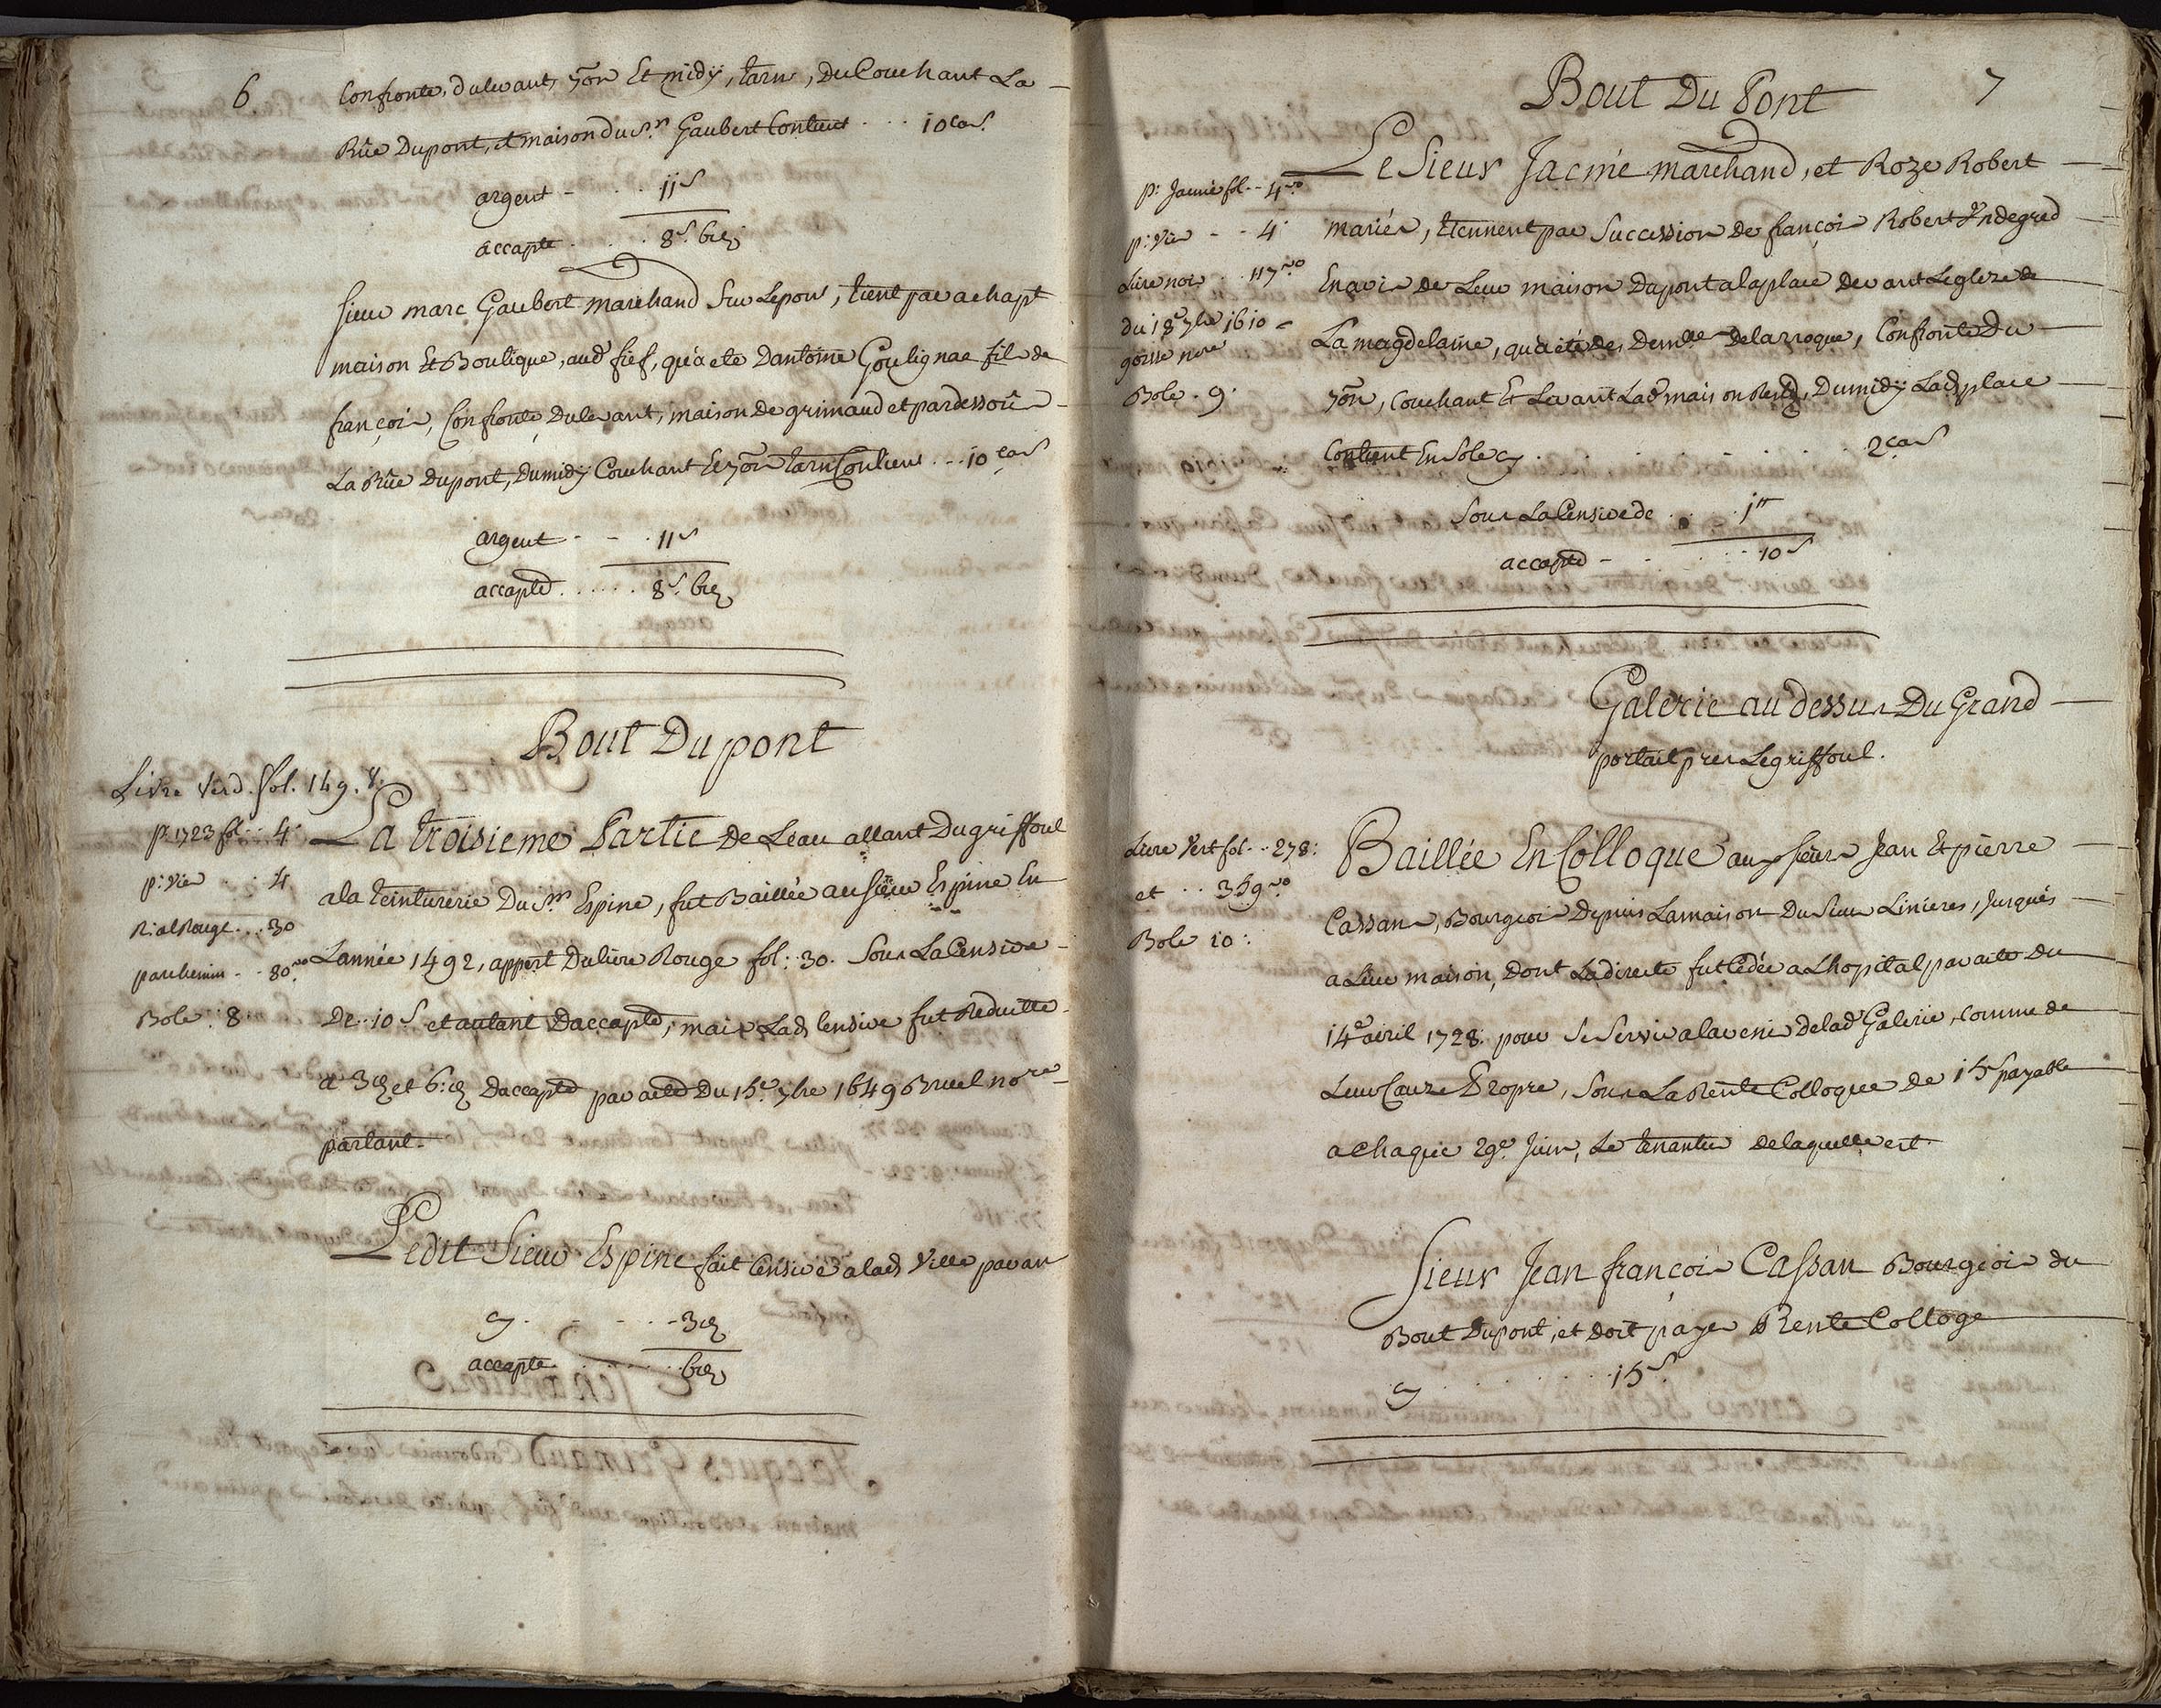 6
Confronte, dulevant, yon Et midy, tarn, Du Couchant La
Rûe Dupont, et maison du Sr. Gaubert Contient . . . 10 cas.
argent - . . . 11 s
accapte . . . . 8 s. 6 d
Sieur marc Gaubert marchand Sur Lepont, tient par achapt
maison Et Boutique, aud. fief, qu'a ete Dantoine Goulignac fils de
françois, Confronte, Dulevant, maison de grimaud et pardessous
La Rûe Dupont, Dumidy Couchant Et yon tarn Contient . . 10 cas
argent - - . 11 s
accapte . . . . . 8 s. 6 d
Bout Du pont
Livre Verd. fol. 149. v.
p. 1723 fol . . 4
La troisieme Partie De Leau allant Du griffoul
p. vieu . . 4
a la teinturerie Du Sr. Espine, fut Baillée au Sieur Espine En
Rial Rouge . . . 30
parchemin - - 80 vo
Lannée 1492, appert Du livre Rouge fol: 30. Sous La Censive
Bole : 8
De 10 s et autant Daccapte, mais Lad. Censive fut Reduitte
a 3 d et 6 d Daccapte par acte Du 15e. 7bre 1649 Bruel nore
partant.
Ledit Sieur Espine fait Censive a lad. Ville par an
cy . - - . - 3 d
accapte . . . . . 6 d
Bout Du Pont
7
Le Sieur Jacmé marchand, et Roze Robert
p: Jaune fol - - 4 vo
mariés, tiennent par Succession De françois Robert
p: vieu - - 4
Livre noir . . 117 vo
En avis de Leur maison Dupont a la place devant Leglize de
du 18e 7bre 1610
La magdelaine, qu'a été de Demlle Delarroque, Confronte Du
Bole . 9.
yon, Couchant Et Levant Lad. maison, Dumidy Lad. place
Contient En Sol cy . . . . . . . 2 cas
Sous La Censive de . . . 1 s
accapte - . . . . 10 s
Galerie au dessus Du Grand
portail pres Le griffoul.
Livre Vert fol . . 278:
Baillée En Colloque aux sieurs Jean Et pierre
et . . 359 vo
Cassans, Bourgeois Depuis La maison Du Sieur Linieres, Jusqués
Bole 10:
a Leur maison, Dont La directe fut Cédée a Lhopital par acte Du
14e avril 1728: pour Se Servir a lavenir de lad. Galerie, comme de
Leur Cauze Propre, Sous La Rente Colloquée de 15 s payable
a Chaque 29e. Juin, Le tenantier de laquelle est
Sieur Jean françois Cassan Bourgeois du
Bout Dupont, et doit payer Rente Colloge
cy . . . . . . 15 s.